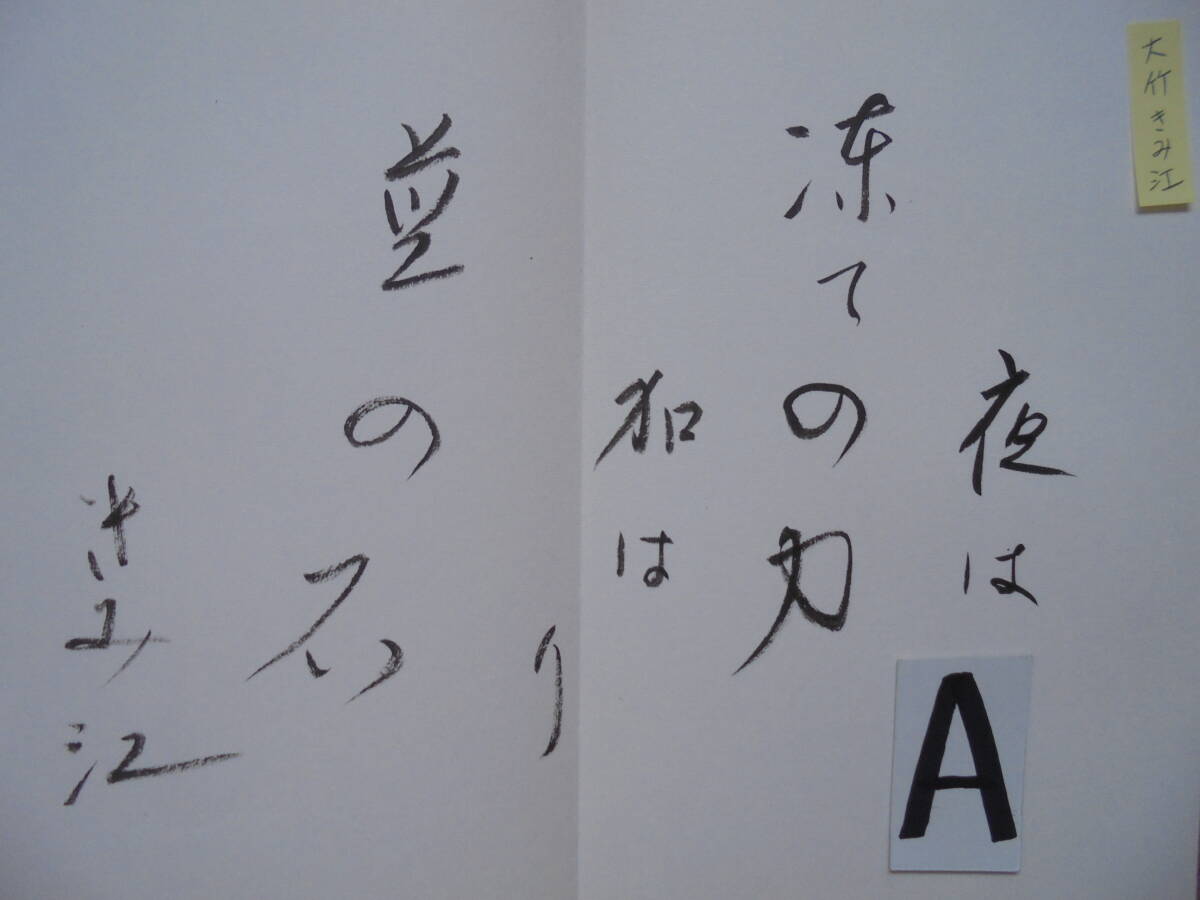 大竹きみ江
夜は
凍ての力
加は
り
の石
み江
A